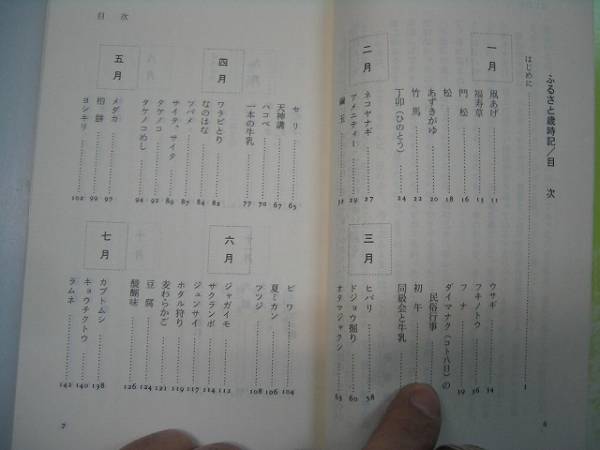 ふるさと歳時記/目次
はじめに……1
一月
凧あげ……11
福寿草……13
門松……16
松……18
あずきがゆ……20
竹馬……22
丁卯(ひのとう)……24
二月
ネコヤナギ……27
アメニティー……29
繭玉……32
ウサギ……34
フキノトウ……36
フナ……39
ダイマナク(コト八日)の
民俗行事……
初午……
同級会と牛乳……
三月
ヒバリ……58
ドジョウ掘り……60
オタマジャクシ……63
6
目次
セリ……65
天神講……67
ハコベ……70
一本の牛乳……77
四月
ワラビとり……82
なのはな……84
ツバメ……87
サイタ、サイタ……89
タケノコ……92
タケノコめし……94
五月
メダカ……97
柏餅……99
ヨシキリ……102
ビワ……104
夏ミカン……106
ツツジ……108
六月
ジャガイモ……112
サクランボ……114
ジュンサイ……117
ホタル狩り……119
麦わらかご……121
豆腐……124
醍醐味……126
七月
カブトムシ……138
キョウチクトウ……140
ラムネ……142
7